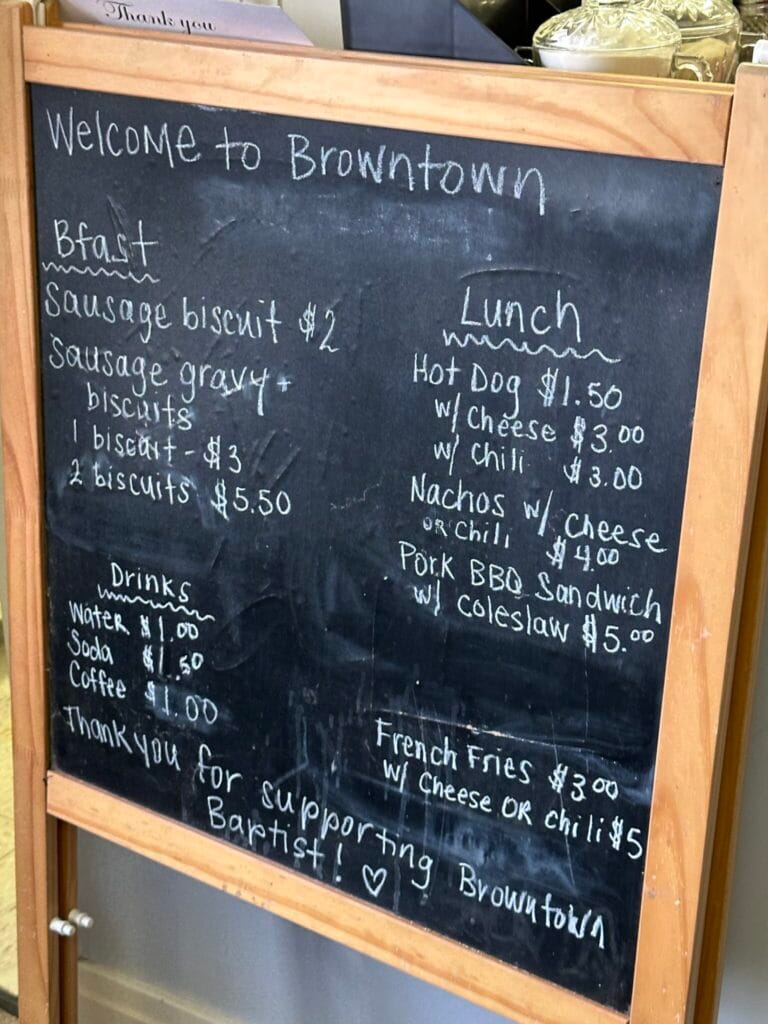 Thank you
Welcome to Browntown
Bfast
Sausage biscuit $2
Sausage gravy +
biscuits
1 biscuit - $3
2 biscuits $5.50
Drinks
Water $1.00
Soda $1.50
Coffee $1.00
Lunch
Hot Dog $1.50
w/ Cheese $3.00
w/ Chili $3.00
Nachos w/ Cheese
OR Chili $4.00
Pork BBQ Sandwich
w/ Coleslaw $5.00
French Fries $3.00
w/ Cheese OR Chili $5
Thank you for supporting Browntown
Baptist! ♡